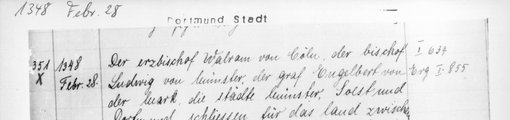 1348 Febr. 28
Dortmund Stadt
351 1348 Der erzbischof Walram von Cöln, der bischof I 634
X Febr. 28. Ludwig von Münster, der graf Engelbert von Erg I 855
der Mark, die städte Münster, Soest und
Dortmund schliessen für das land zwisch